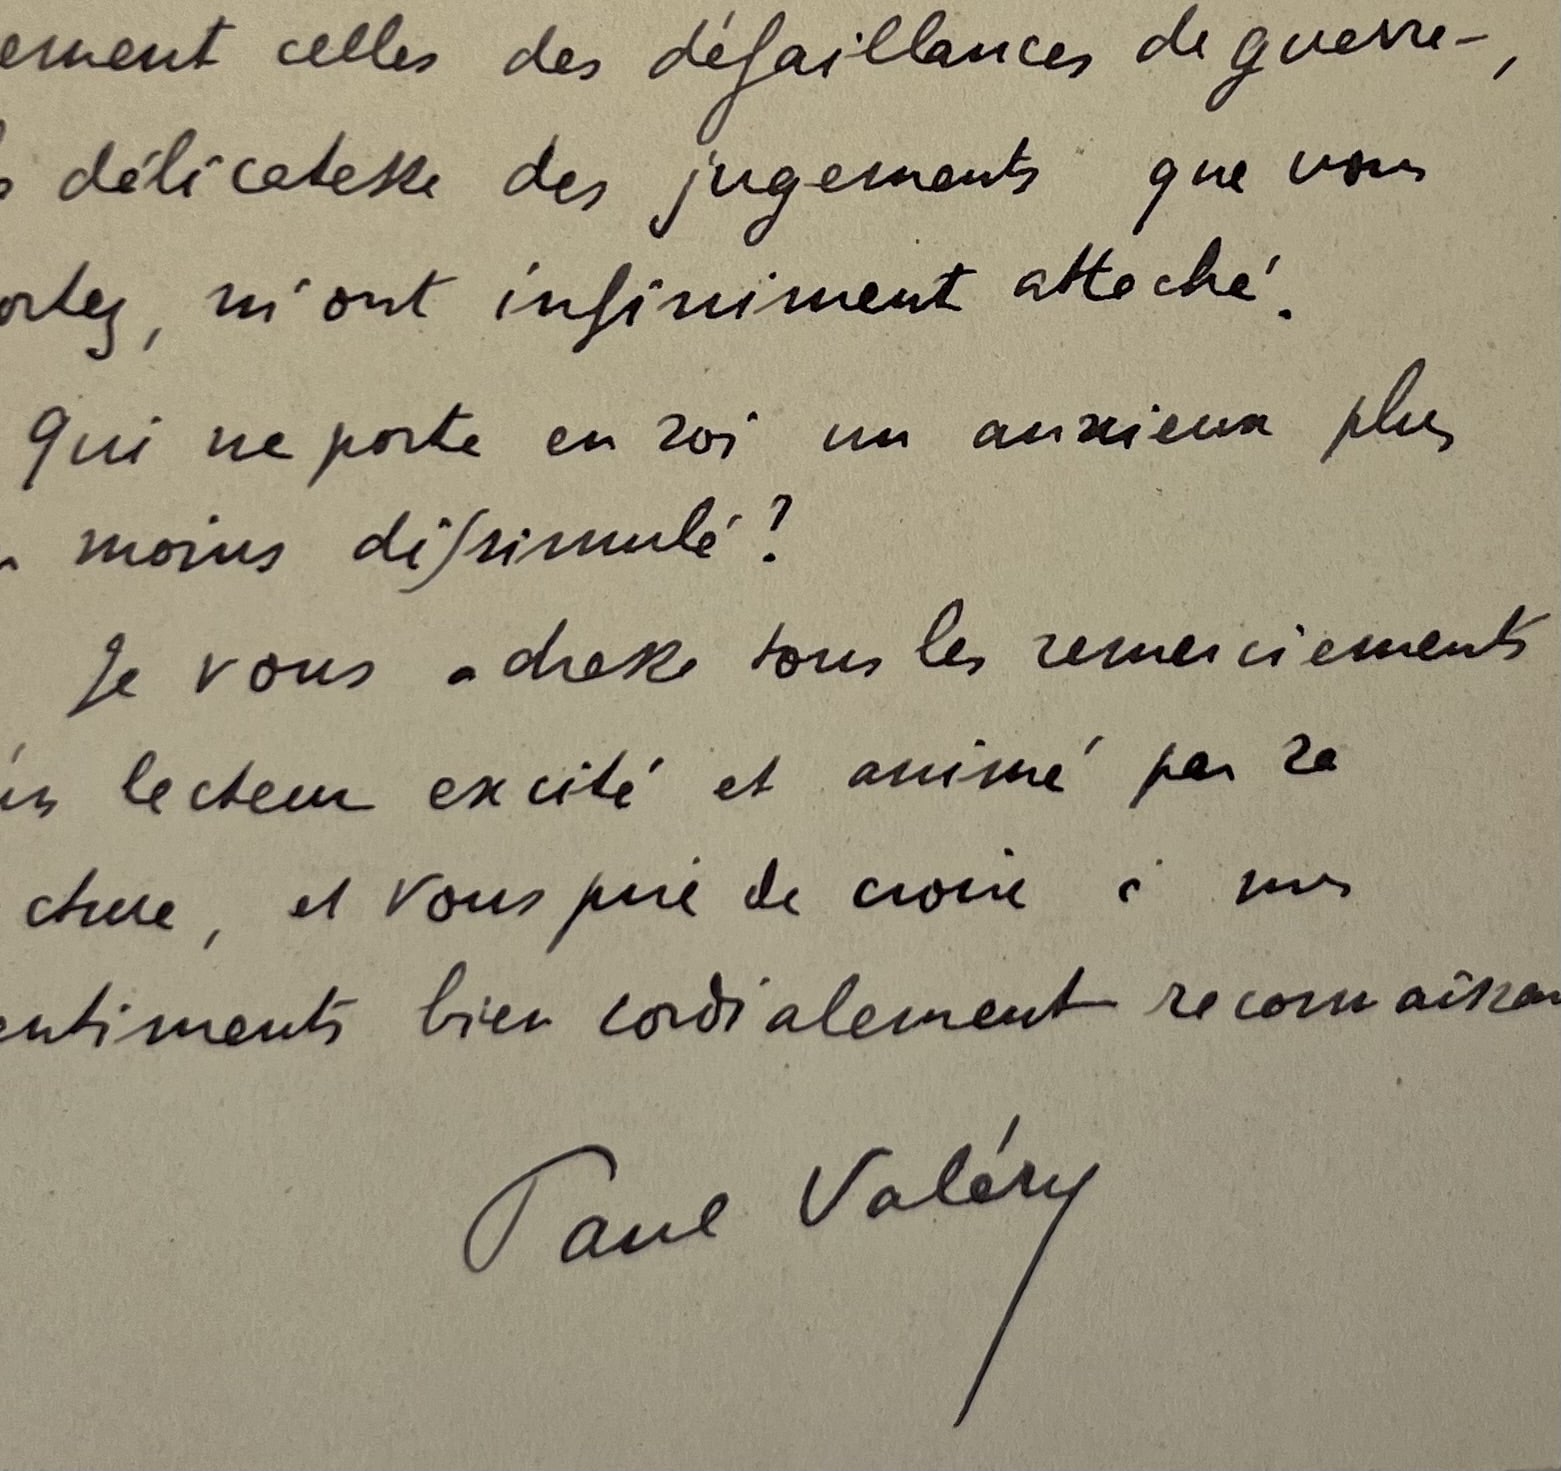 ement celles des défaillances de guerre-,
délicatesse des jugements que vous
ortez, m'ont infiniment attaché.
Qui ne porte en soi un anxieux plus
moins dissimulé?
Je vous adresse tous les remerciements
lecteur excité et animé par sa
cture, et vous prie de croire à mes
entiments bien cordialement reconnaissan
Paul Valéry